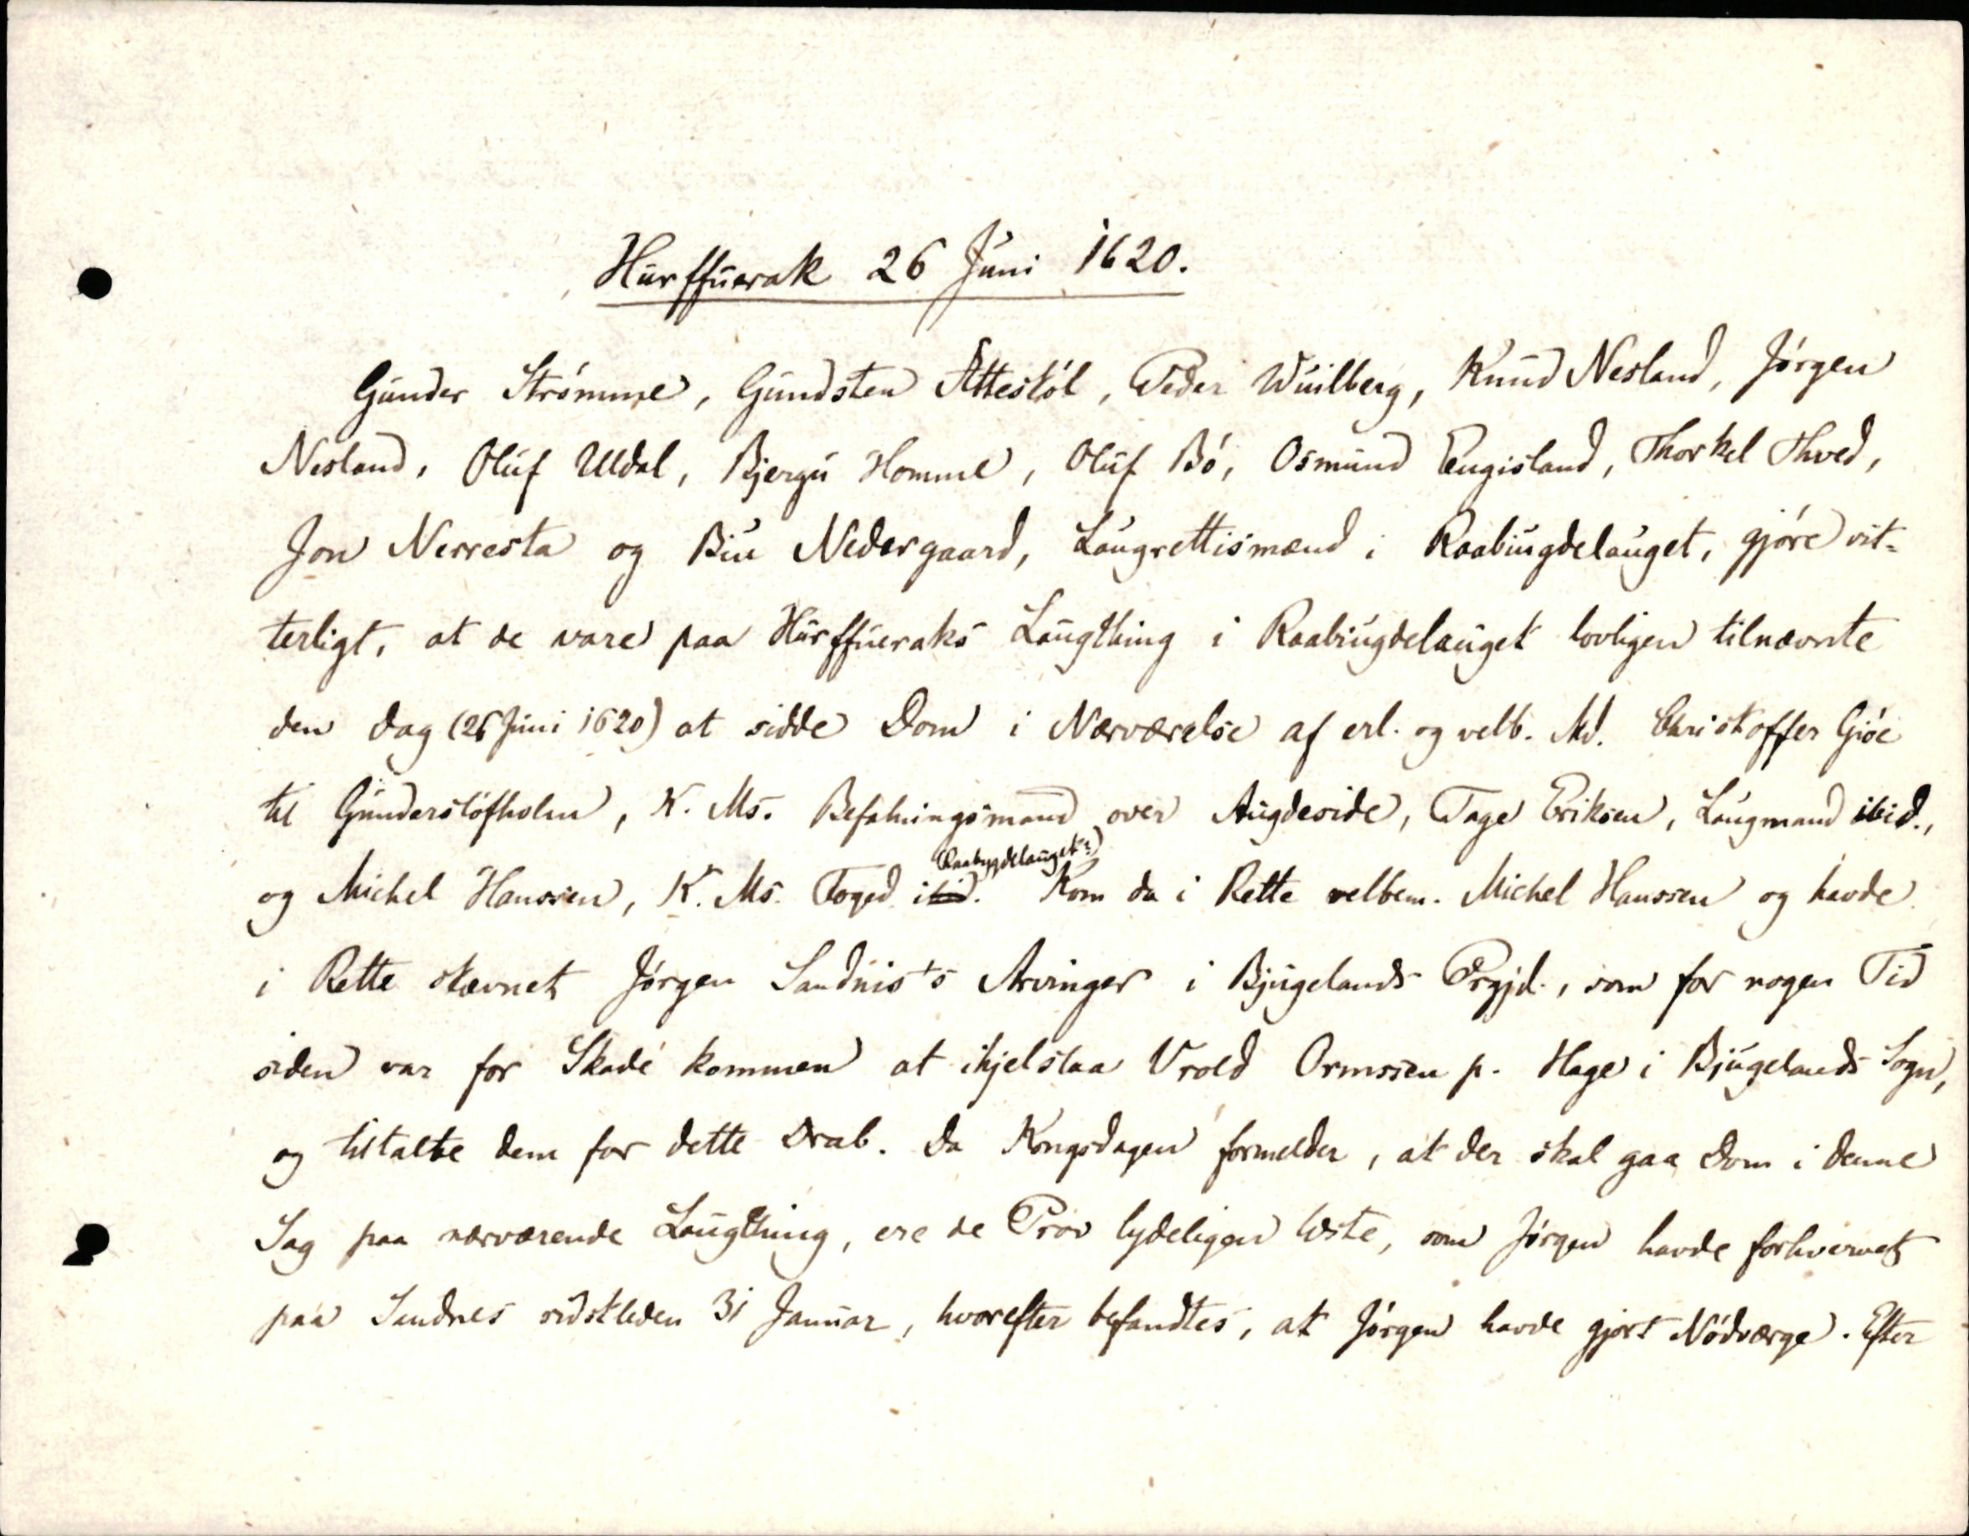 Hurffuerak 26 Juni 1620.
Gunder Strömme, Gundsten Ættestöl, Peder Wuilberg, Knud Nesland, Jörgen
Nesland, Oluf Uldal, Bjergu Homme, Oluf Bö, Osmund Eugisland, Thorkel Thved,
Jon Nerresta og Biu Nedergaard, Laugrettismænd i Raabiugdelauget, gjöre vit-
terligt, at de vare paa Hurffueraks Laugthing i Raabiugdelauget lovligen tilnævnte
den Dag (26 Juni 1620) at sidde Dom i Nærværelse af erl. og velb. Md. Christoffer Giöe
til Gunderslöfholm, K. Ms. Befalningsmand over Augdeside, Tage Eriksen, Laugmand ibid.,
og Michel Hanssen, K. Ms. Foged i (Raabygdelauget:) Kom da i Rette velbem. Michel Hanssen og havde
i Rette stævnet Jörgen Sandnis's Arvinger i Bjugelands Prgjd., som for nogen Tid
siden var for Skade kommen at ihjelslaa Vrold Ormssen p. Hage i Bjugelands Sogn,
og tiltalte dem for dette Drab. Da Kongsdagen formelder, at der skal gaa Dom i denne
Sag paa nærværende Laugthing, ere de Prov lydeligen læste, som Jörgen havde forhvervet
paa Sandnes sidstleden 31 Januar, hvorefter befandtes, at Jörgen havde gjort Nödværge. Efter